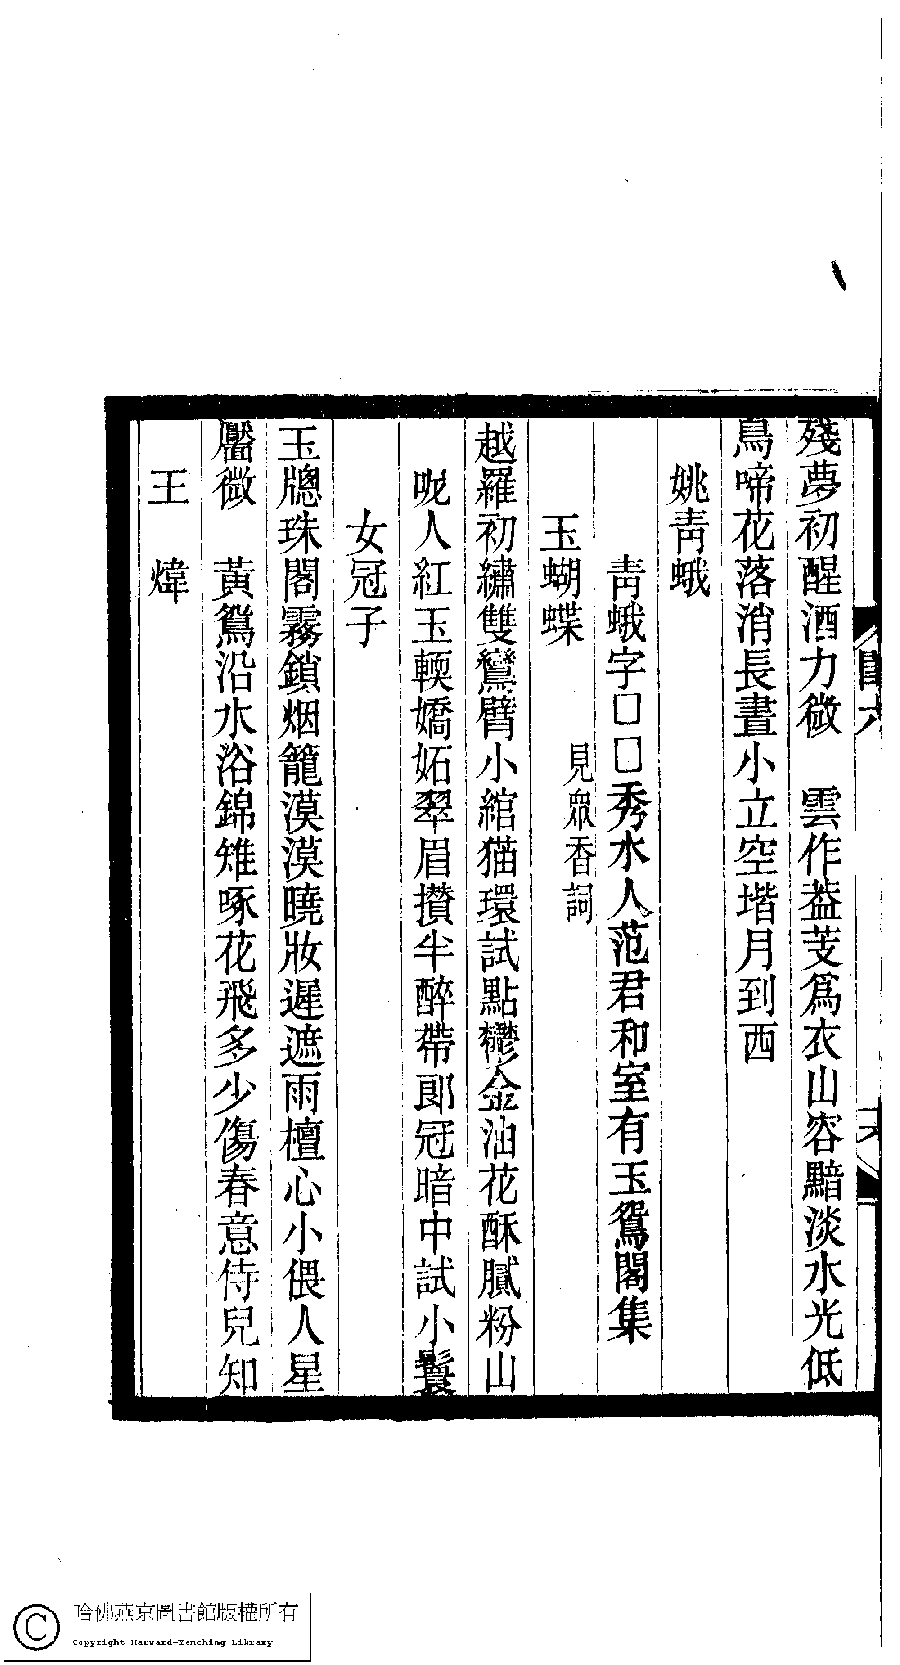 殘夢初醒酒力微　雲作葢芰爲衣山容黯淡水光低
鳥啼花落消長晝小立空堦月到西
姚靑蛾
靑蛾字□□秀水人范君和室有玉鴛閣集
玉蝴蝶　見衆香詞
越羅初繡雙鸞臂小綰猫環試點欝金油花酥膩粉山
呢人紅玉輭嬌妬翠眉攢半醉帶郎冠暗中試小鬟
女冠子
玉牕珠閣霧鎖烟籠漠漠曉妝遲遮雨檀心小偎人星
靨微　黃鴛沿水浴錦雉啄花飛多少傷春意侍兒知
王　煒
哈佛燕京圖書館版權所有
Copyright Harvard-Yenching Library